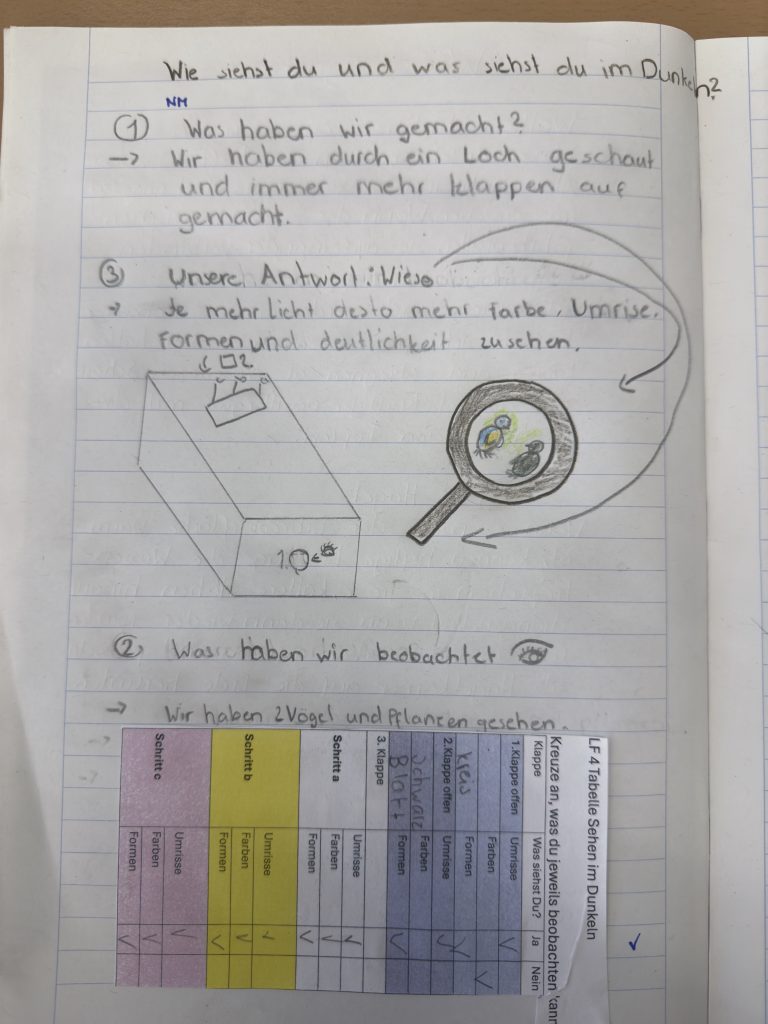 Wie siehst du und was siehst du im Dunkeln?
NM
① Was haben wir gemacht?
→ Wir haben durch ein Loch geschaut
und immer mehr klappen auf
gemacht.
③ Unsere Antwort: Wieso
→ Je mehr licht desto mehr farbe, Umrise,
Formen und deutlichkeit zusehen.
2
1.
② Was haben wir beobachtet
→ Wir haben 2 Vögel und Pflanzen gesehen.
LF 4 Tabelle Sehen im Dunkeln
Kreuze an, was du jeweils beobachten kann
Klappe Was siehst Du? Ja Nein
1.Klappe offen Umrisse ✓
Farben ✓
Kreis Formen ✓
2.Klappe offen Umrisse ✓
Schwarz Farben
Blatt Formen ✓
3. Klappe
Schritt a Umrisse ✓
Farben ✓
Formen ✓
Schritt b Umrisse ✓
Farben ✓
Formen ✓
Schritt c Umrisse ✓
Farben ✓
Formen ✓